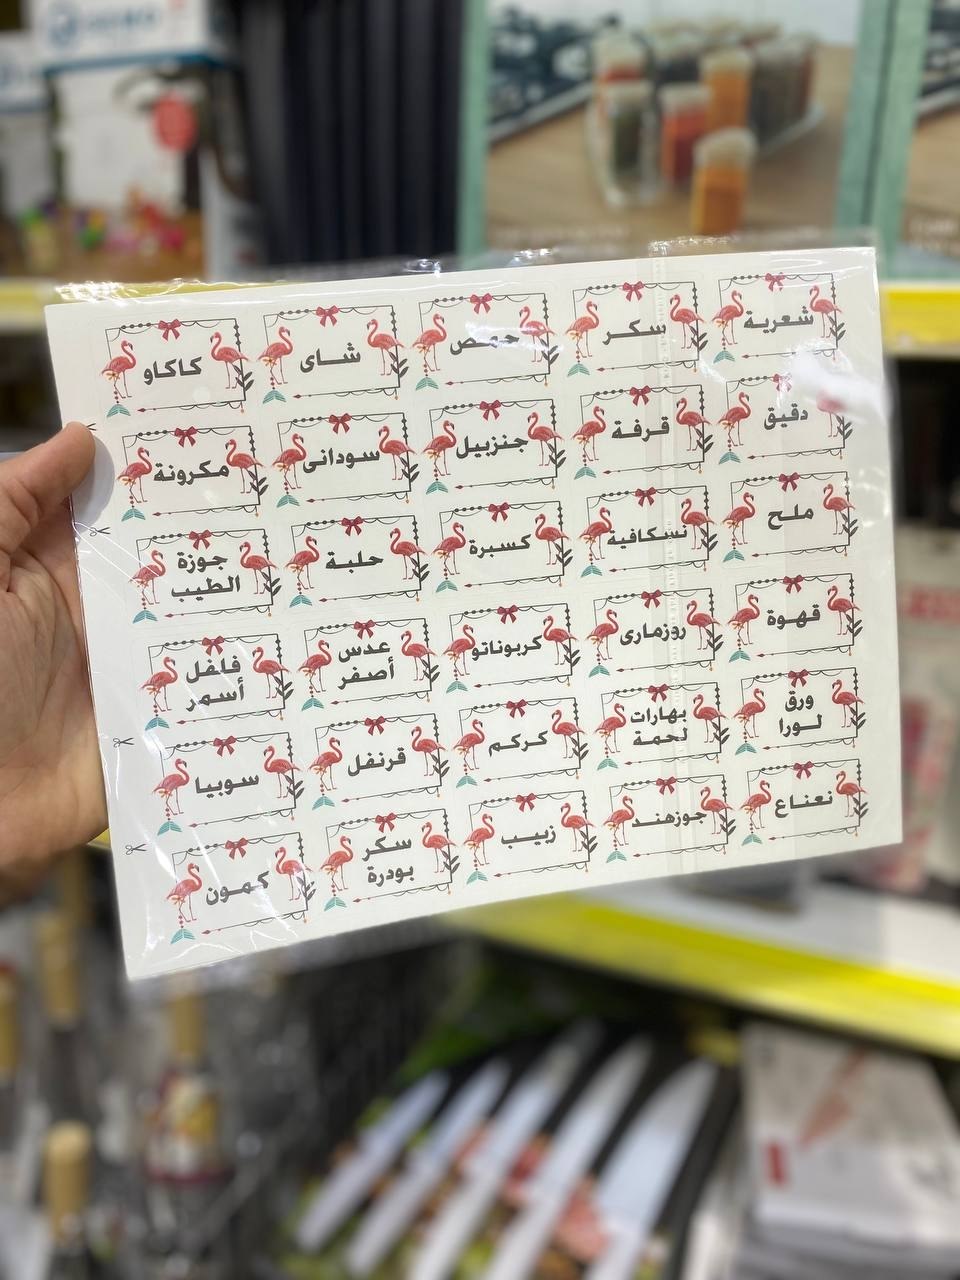 شعرية
سكر
حمص
شاى
كاكاو
دقيق
قرفة
جنزبيل
سودانى
مكرونة
ملح
نسكافية
كسبرة
حلبة
جوزة
الطيب
قهوة
روزمارى
كربوناتو
عدس
أصفر
فلفل
أسمر
ورق
لورا
بهارات
لحمة
كركم
قرنفل
سوبيا
نعناع
جوزهند
زبيب
سكر
بودرة
كمون